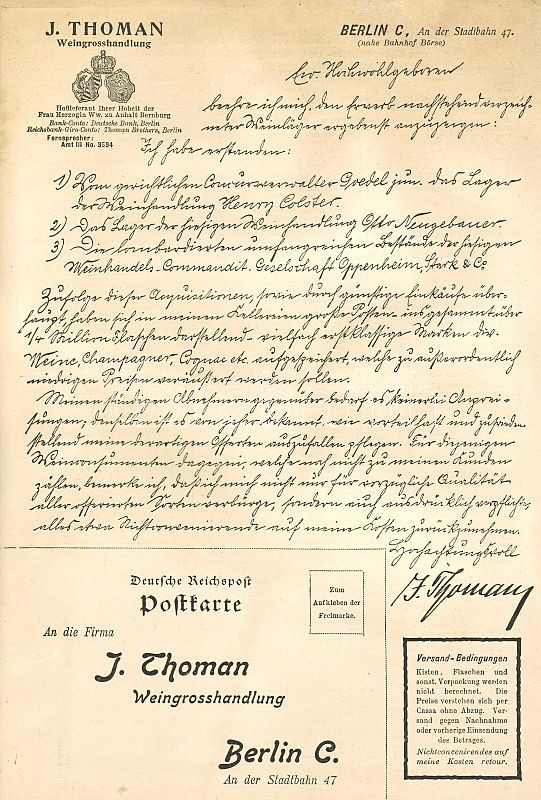 J. THOMAN
Weingrosshandlung
Hoflieferant Ihrer Hoheit der
Frau Herzogin Ww. zu Anhalt Bernburg
Bank-Conto: Deutsche Bank, Berlin
Reichsbank-Giro-Conto: Thoman Brothers, Berlin
Fernsprecher:
Amt III No. 3594
BERLIN C, An der Stadtbahn 47.
(nahe Bahnhof Börse)
Ew. Hochwohlgeboren
beehre ich mich, den Erwerb nachstehend verzeich-
neter Weinläger ergebenst anzuzeigen:
Ich habe erstanden:
1) Vom gerichtlichen Concursverwalter Goedel jun. das Lager
der Weinhandlung Henry Colster.
2) Das Lager der hiesigen Weinhandlung Otto Neugebauer.
3) Die lombardierten umfangreichen Bestände der hiesigen
Weinhandels-Commandit-Gesellschaft Oppenheim, Stark & Co
Zufolge dieser Acquisitionen, sowie durch günstige Einkäufe über-
haupt, haben sich in meinen Kellereien große Posten - insgesamt über
1/4 Million Flaschen darstellend - vielfach erstklassige Marken div.
Weine, Champagner, Cognac etc. aufgespeichert, welche zu außerordentlich
niedrigen Preisen veräussert werden sollen.
Meinen ständigen Abnehmern gegenüber bedarf es keinerlei Anprei-
sungen; denselben ist es von jeher bekannt, wie vorteilhaft und zufrieden-
stellend meine derartigen Offerten auszufallen pflegen. Für diejenigen
Weinconsumenten dagegen, welche noch nicht zu meinen Kunden
zählen, bemerke ich, daß ich mich nicht nur für vorzügliche Qualität
aller offerierten Sorten verbürge, sondern auch ausdrücklich verpflichte,
alles etwa Nichtconvenierende auf meine Kosten zurückzunehmen.
Hochachtungsvoll
J. Thoman
Deutsche Reichspost
Postkarte
Zum
Aufkleben der
Freimarke.
An die Firma
J. Thoman
Weingrosshandlung
Berlin C.
An der Stadtbahn 47
Versand-Bedingungen
Kisten, Flaschen und
sonst. Verpackung werden
nicht berechnet. Die
Preise verstehen sich per
Cassa ohne Abzug. Ver-
sand gegen Nachnahme
oder vorherige Einsendung
des Betrages.
Nichtconvenirendes auf
meine Kosten retour.